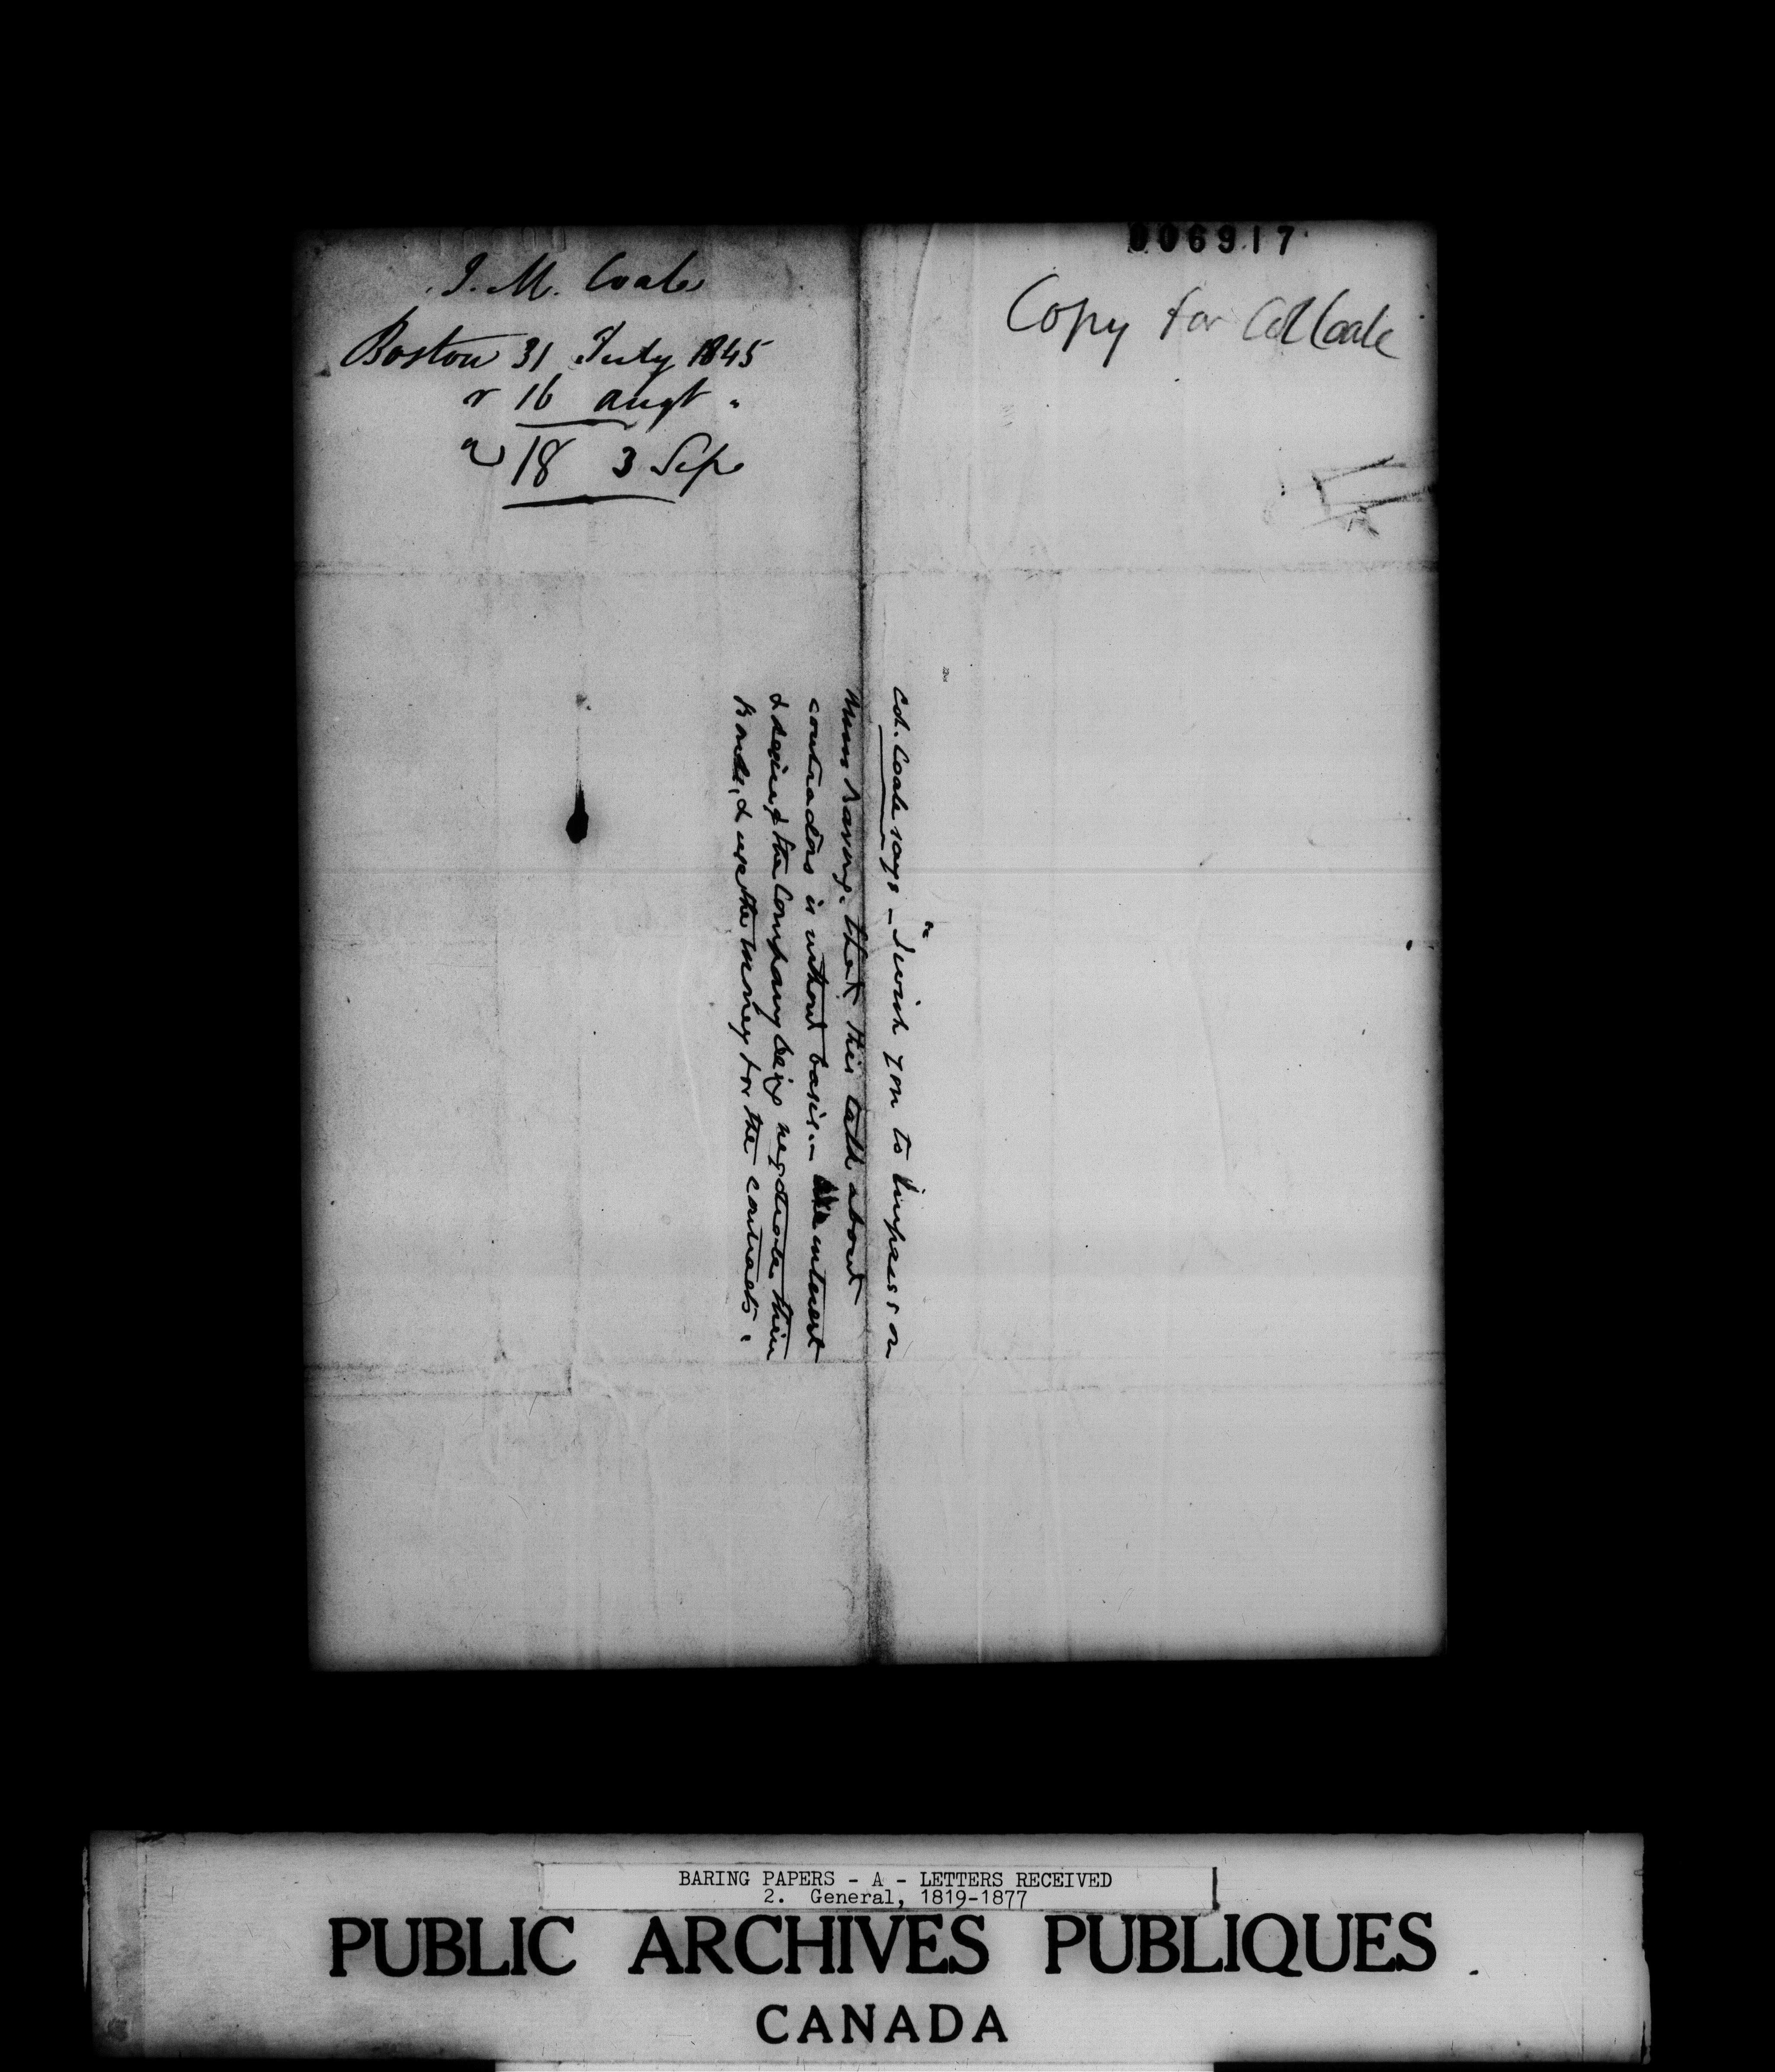 J. M. Coale
Boston 31 July 1845
r 16 augt "
a 18 3 Sep
006917
Copy for Col Coale
Col. Coale says – I wish you to impress on
Messrs Baring. that this talk about
contractors is without basis – interest
& the Company being negotiate their
Bonds, & use the money for the contracts.
BARING PAPERS - A - LETTERS RECEIVED
2. General, 1819-1877
PUBLIC ARCHIVES PUBLIQUES
CANADA